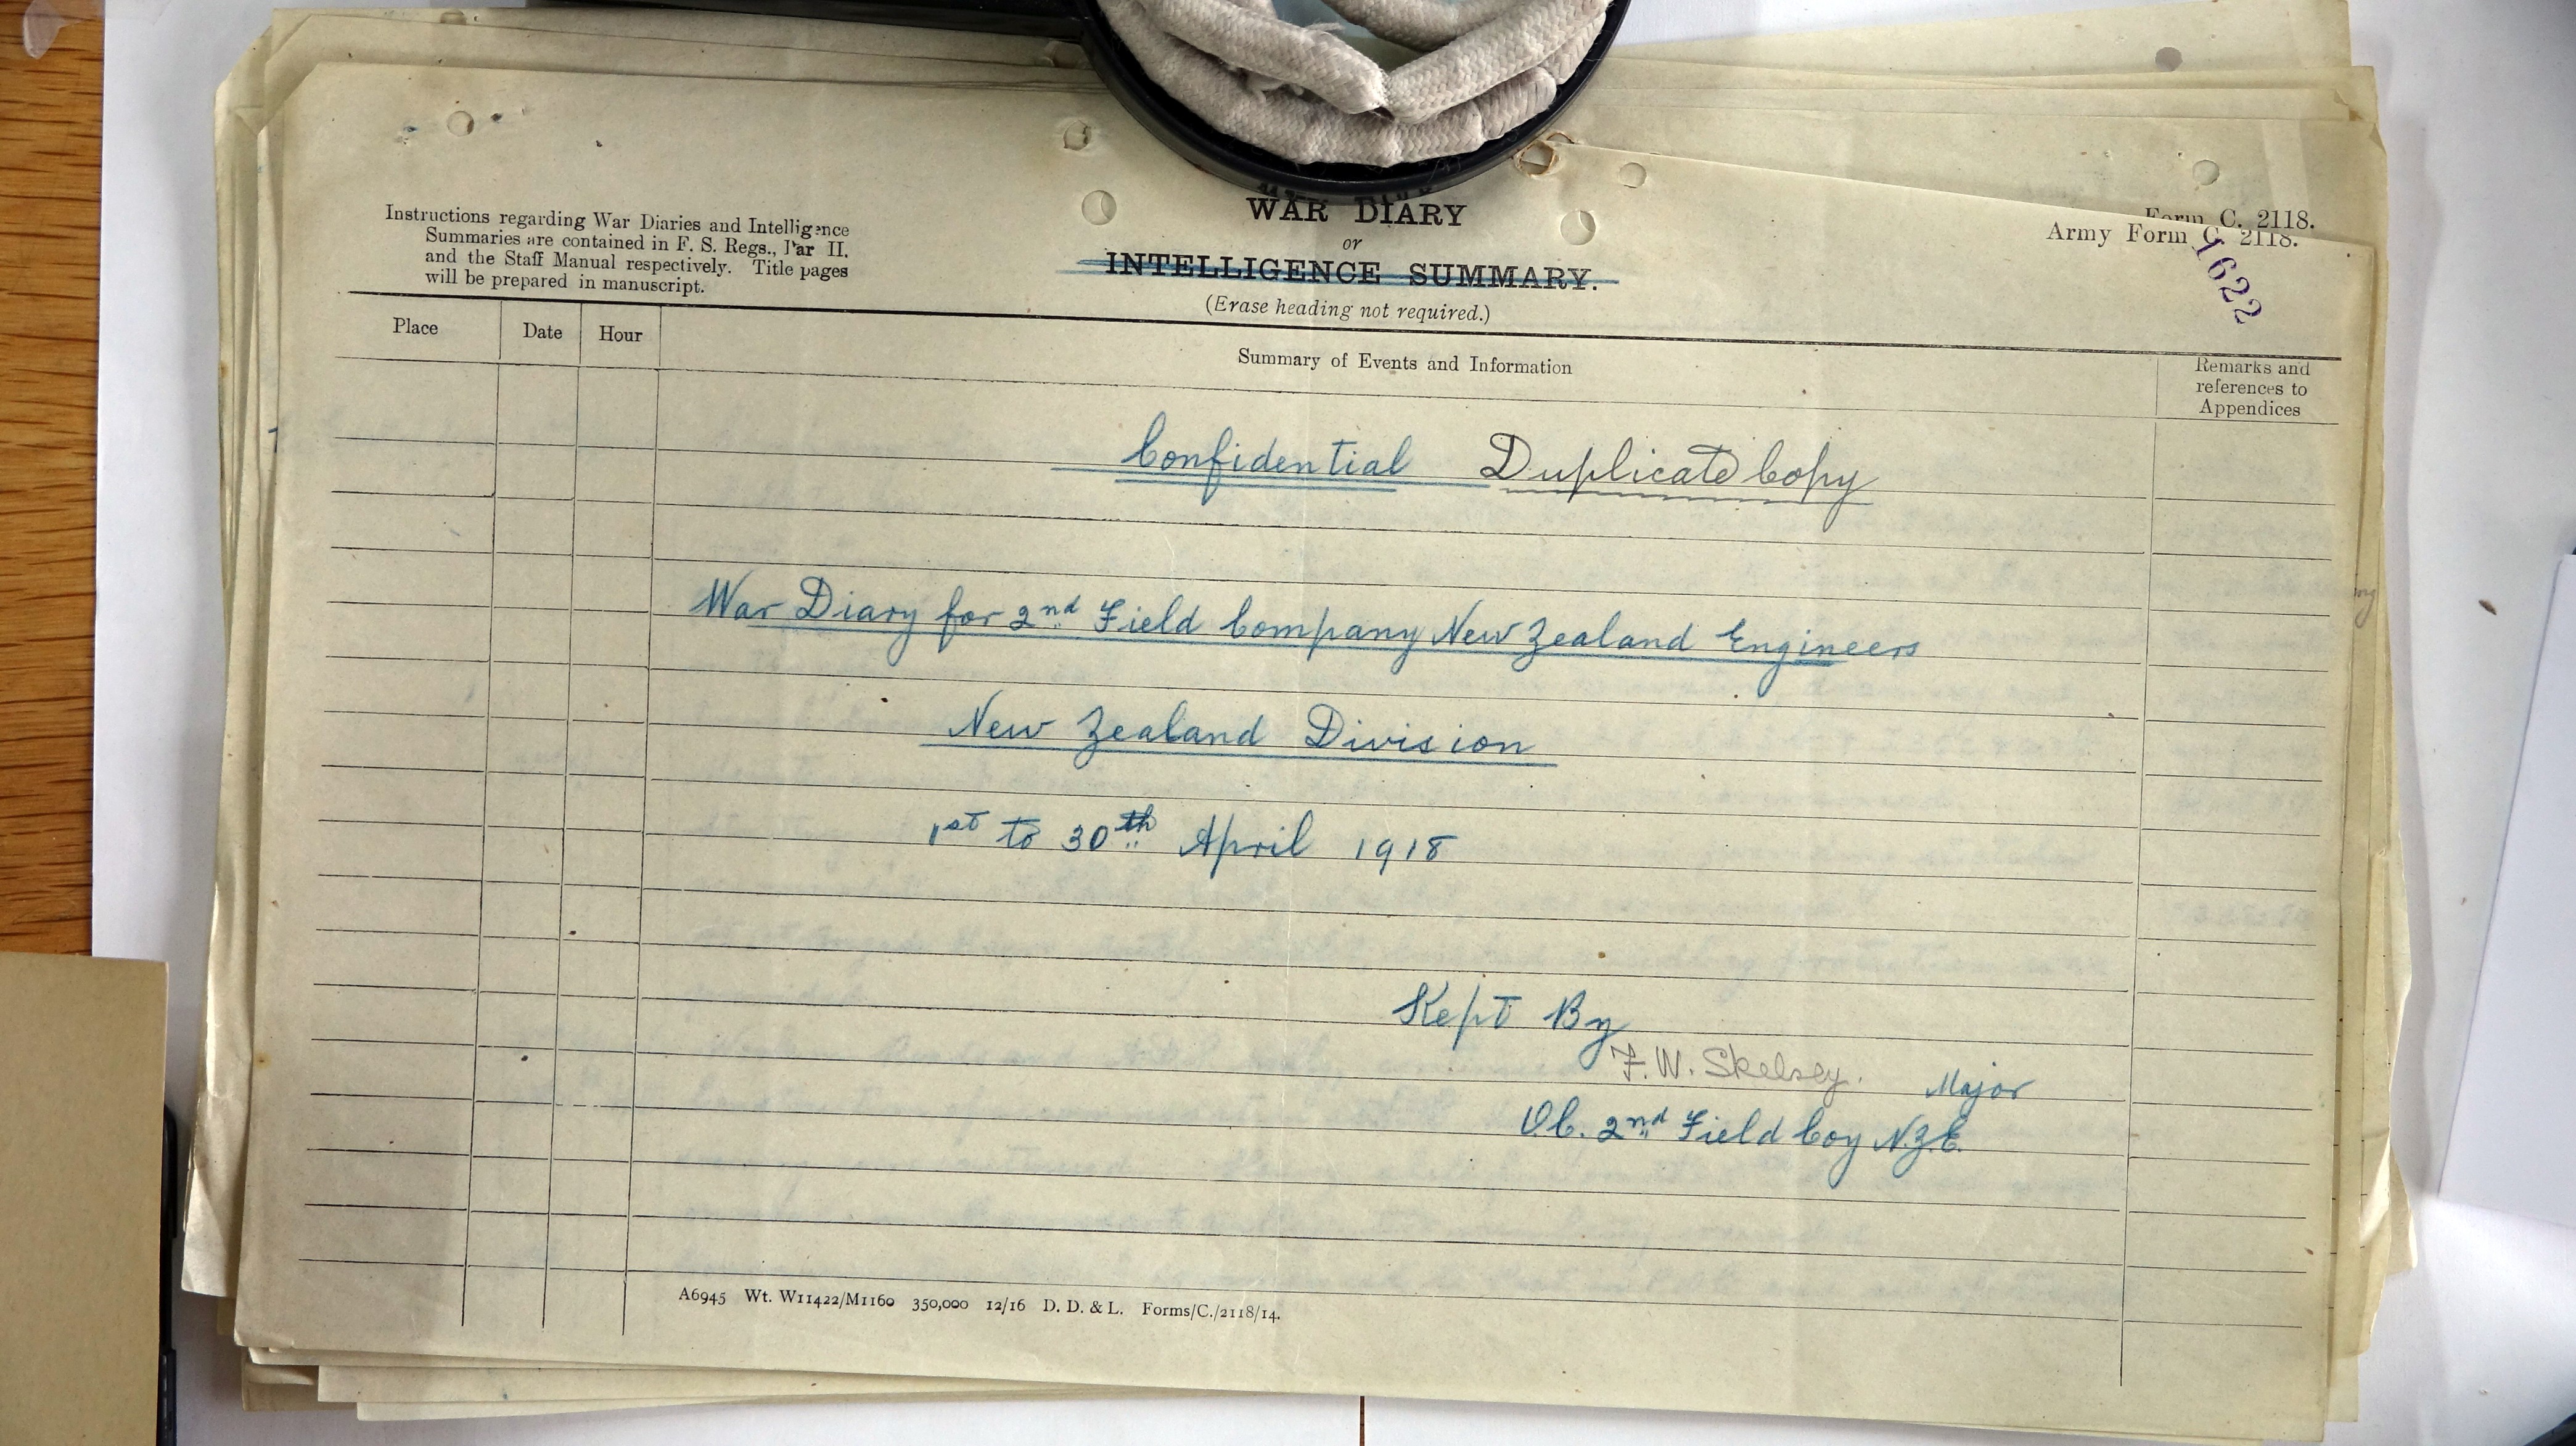 Instructions regarding War Diaries and Intelligence
Summaries are contained in F. S. Regs., Par II.
and the Staff Manual respectively. Title pages
will be prepared in manuscript.
WAR DIARY
or
INTELLIGENCE SUMMARY.
(Erase heading not required.)
Form C. 2118.
Army Form C. 2118.
1622
Place Date Hour Summary of Events and Information Remarks and
references to
Appendices
Confidential Duplicate Copy
War Diary for 2nd Field Company New Zealand Engineers
New Zealand Division
1st to 30th April 1918
Kept By
F. W. Skelsey. Major
O.C. 2nd Field Coy N.Z.E.
A6945 Wt. W11422/M1160 350,000 12/16 D. D. & L. Forms/C./2118/14.